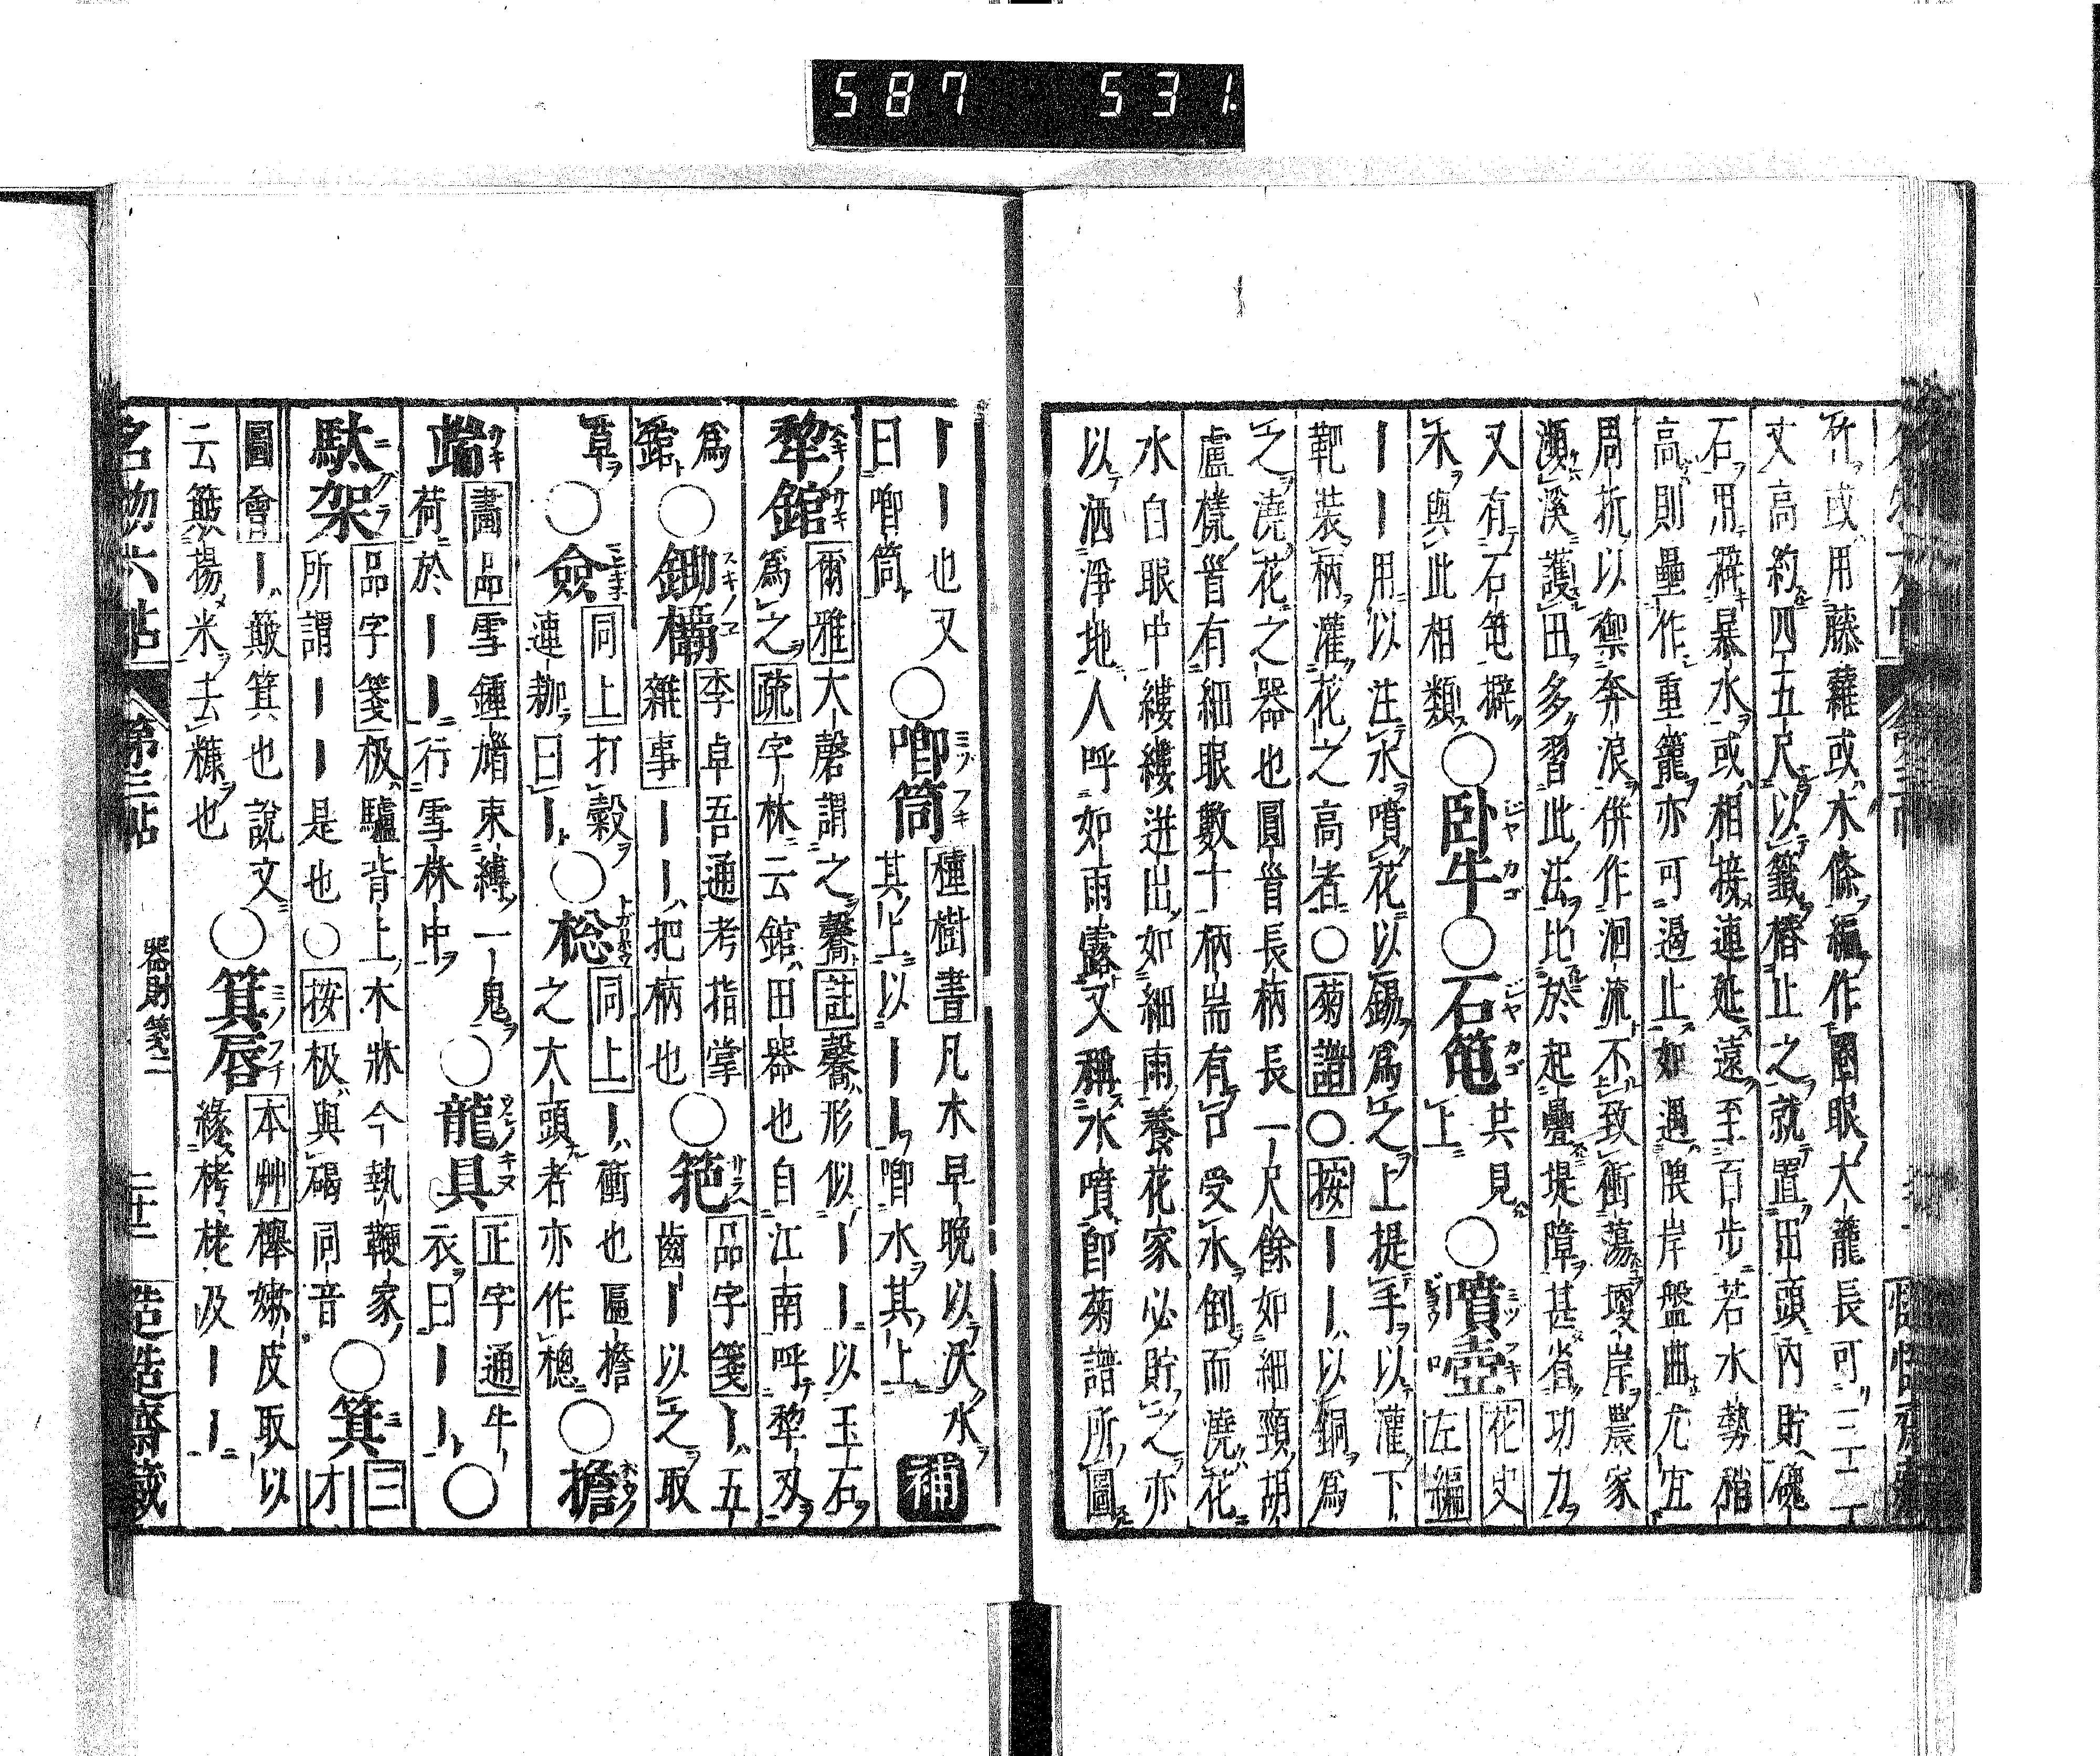 587 531.
竹或用藤蘿或木條編作圈眼大籠長可三二
丈高約四五尺以籤樁止之就置田頭內貯磯
石用辟暴水或相接連延遠至百步若水勢稍
高則壘作重籠亦可遏止如遇隈岸盤曲尤宜
周折以禦奔浪併作洄流不致衝蕩埂岸農家
瀕溪護田多習此法比於起疊堤障甚省功力
又有石笆擗
水與此相類
○卧牛○石笆
共見
上
○噴壺
花史
左編
ーー用以注水噴花以錫爲之上提手以灌下
靶裝柄灌花之高者○菊譜○按ーー以銅爲
之澆花之器也圓首長柄長一尺餘如細頸胡
盧樣首有細眼數十柄耑有口受水倒而澆花
水自眼中縷縷迸出如細雨養花家必貯之亦
以洒淨地人呼如雨露又稱水噴即菊譜所圖
ーー也又
曰喞筒
○喞筒
種樹書凡木早晚以沃水
其上以ーー喞水其上
補
犂錧
爾雅大磬謂之馨註馨形似ーー以玉石
爲之疏字林云錧田器也自江南呼犂刃
爲
錧
○鋤欛
李卓吾通考指掌
雜事ーー把柄也
○筢
品字箋ー五
齒ー以之取
草
○僉
同上打穀
連耞曰ー
○棇
同上ー衝也匾檐
之大頭者亦作樬
○擔
耑
畫品雪鍾馗束縛一鬼
荷於ーー行雪林中
○龍具
正字通牛
衣曰ーー
○
馱架
品字箋极驢背上木牀今執鞭家
所謂ーー是也○按极與碣同音
○箕
三才
圖會ー簸箕也說文
云簸揚米去糠也
○箕唇
本艸櫸嫩皮取以
緣栲栳及ーー
名物六帖
第三帖
器財箋二
二十二